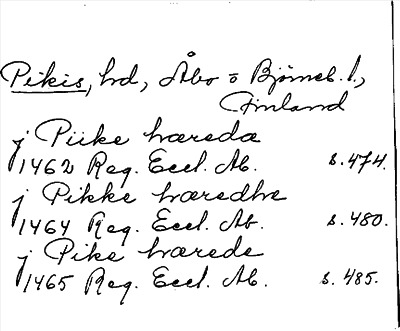 Pikis, hd, Åbo o Björneb. l.,
Finland
j Piike hæredæ
1462 Reg. Eccl. Ab. s. 474.
j Pikke hæredhe
1464 Reg. Eccl. Ab. s. 480.
j Pike hærede
1465 Reg. Eccl. Ab. s. 485.